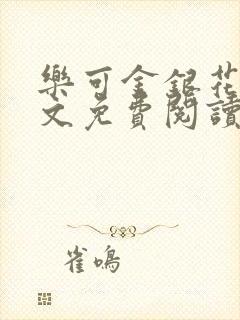 樂可金銀花
文免費閱讀
雀鳴